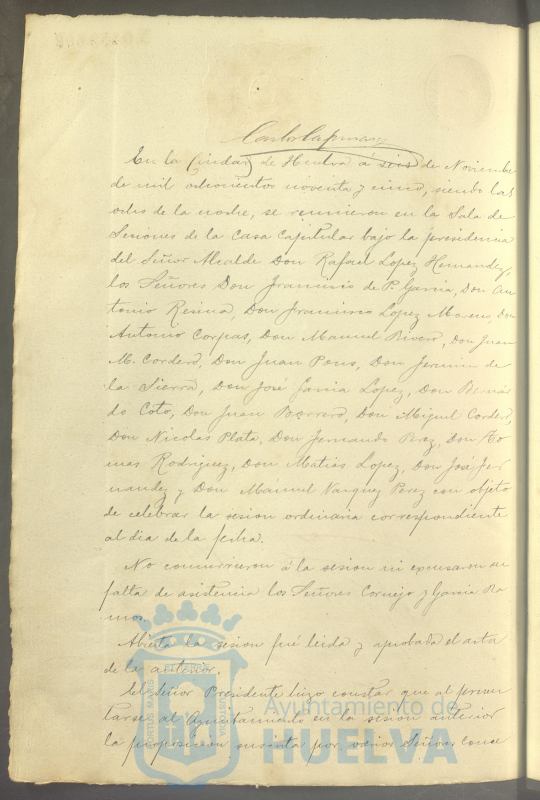 En la Ciudad de Huelva á seis de Noviembre
de mil ochocientos noventa y cinco, siendo las
ocho de la noche, se reunieron en la Sala de
Sesiones de la Casa Capitular bajo la presidencia
del Señor Alcalde Don Rafael Lopez Hernandez,
los Señores Don Francisco de P. Garcia, Don An
tonio Resina, Don Francisco Lopez Moreno, Don
Antonio Corpas, Don Manuel Rivero, Don Juan
M. Cordero, Don Juan Pons, Don Fermin de
la Sierra, Don José Garcia Lopez, Don Bernar
do Coto, Don Juan Borrero, Don Miguel Cordero,
Don Nicolas Plata, Don Fernando Perez, Don To
mas Rodriguez, Don Matias Lopez, Don José Fer
nandez y Don Manuel Vazquez Perez con objeto
de celebrar la sesion ordinaria correspondiente
al dia de la fecha.
No concurrieron á la sesion ni excusaron su
falta de asistencia los Señores Cornejo y Garcia Ra
mos.
Abierta la sesion fué leida y aprobada el acta
de la anterior.
El Señor Presidente hizo constar que al presen
tarse al Ayuntamiento en la sesion anterior
la proposicion suscrita por varios Señores Conce
Ayuntamiento de
HUELVA
PORTUS MARIS ET TERRÆ CUSTODIA